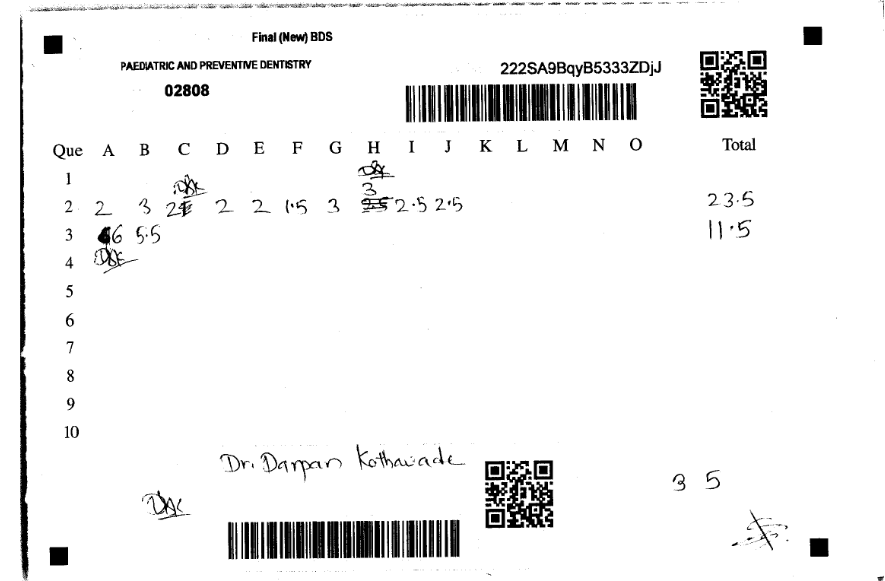 Final (New) BDS
PAEDIATRIC AND PREVENTIVE DENTISTRY
222SA9BqyB5333ZDjJ
02808
Que A B C D E F G H I J K L M N O Total
1
3
2 2 3 2 2 2 1.5 3 2.5 2.5 23.5
3 6 5.5 11.5
4
5
6
7
8
9
10
Dr. Darpan Kothawade
35